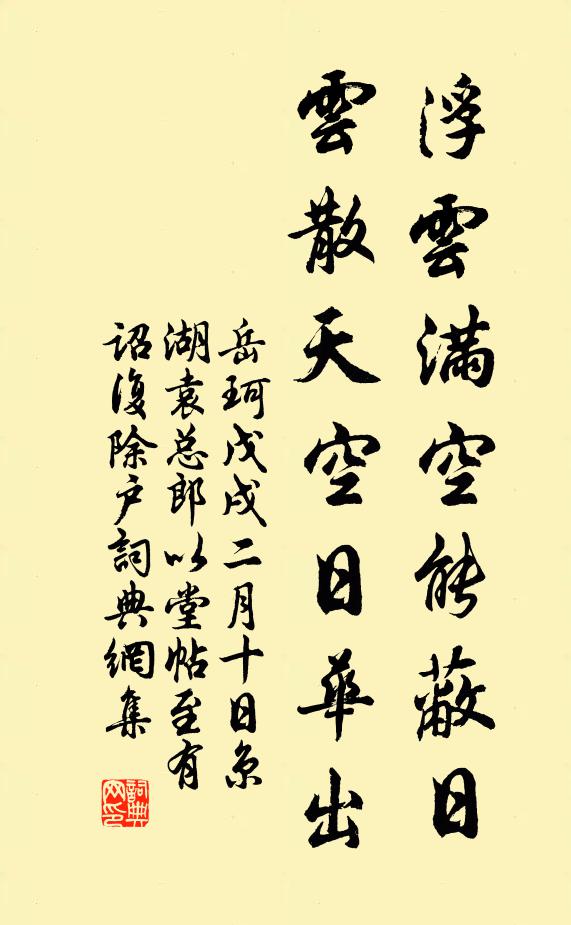 浮雲滿空能蔽日
雲散天空日華出
岳珂戊戌二月十日京
湖袁总郎以堂帖至有
詔復除户詞典網集
詞典
网印